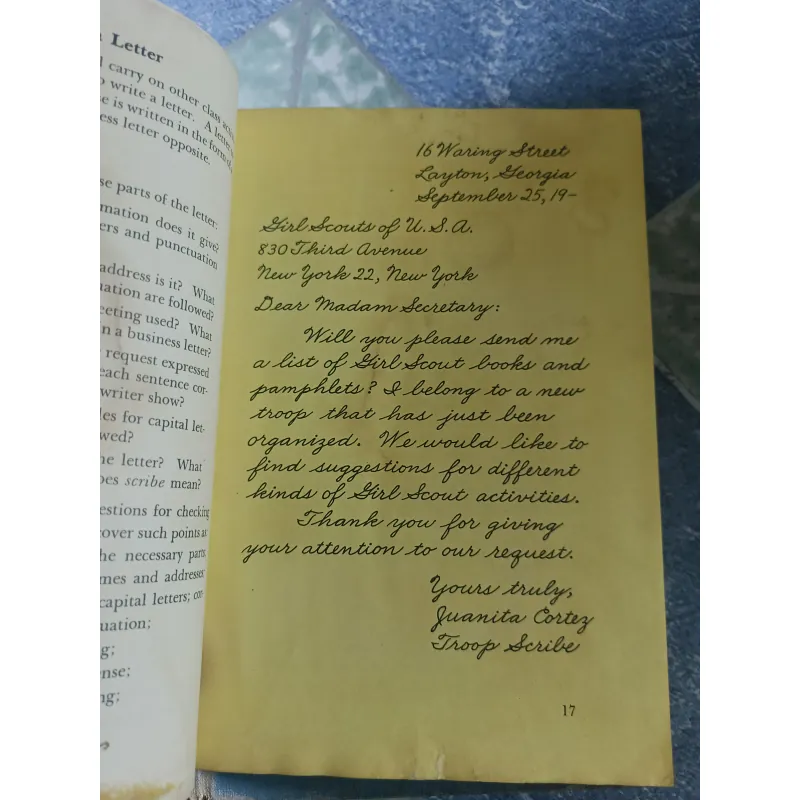 Letter
carry on other class
write a letter. A letter
e is written in the form of
ess letter opposite.
se parts of the letter:
mation does it give?
ers and punctuation
address is it? What
uation are followed?
eeting used? What
n a business letter?
request expressed
each sentence cor-
writer show?
les for capital let-
wed?
he letter? What
oes scribe mean?
estions for checking
cover such points as
he necessary parts
mes and addresses;
capital letters; cor
uation;
g;
nse;
ng;
16 Waring Street
Layton, Georgia
September 25, 19-
Girl Scouts of U.S.A.
830 Third Avenue
New York 22, New York
Dear Madam Secretary:
Will you please send me
a list of Girl Scout books and
pamphlets? I belong to a new
troop that has just been
organized. We would like to
find suggestions for different
kinds of Girl Scout activities.
Thank you for giving
your attention to our request.
Yours truly,
Juanita Cortez
Troop Scribe
17